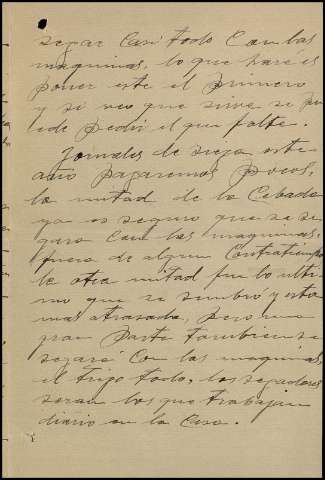 segar casi todo con las
maquinas, lo que haré es
poner este el primero
y si veo que sirve se pu
ede pedir el que falte.
Jornales de siega este
año pagaremos pocos,
la mitad de la Cebada
ya es seguro que se se
gara con las maquinas,
fuera de algun contratiempo
la otra mitad fue lo ulti
mo que se sembro y esta
mas atrasada, pero una
gran parte tambien se
segará con las maquinas,
el trigo todo, los segadores
seran los que trabajan
diario en la Casa.